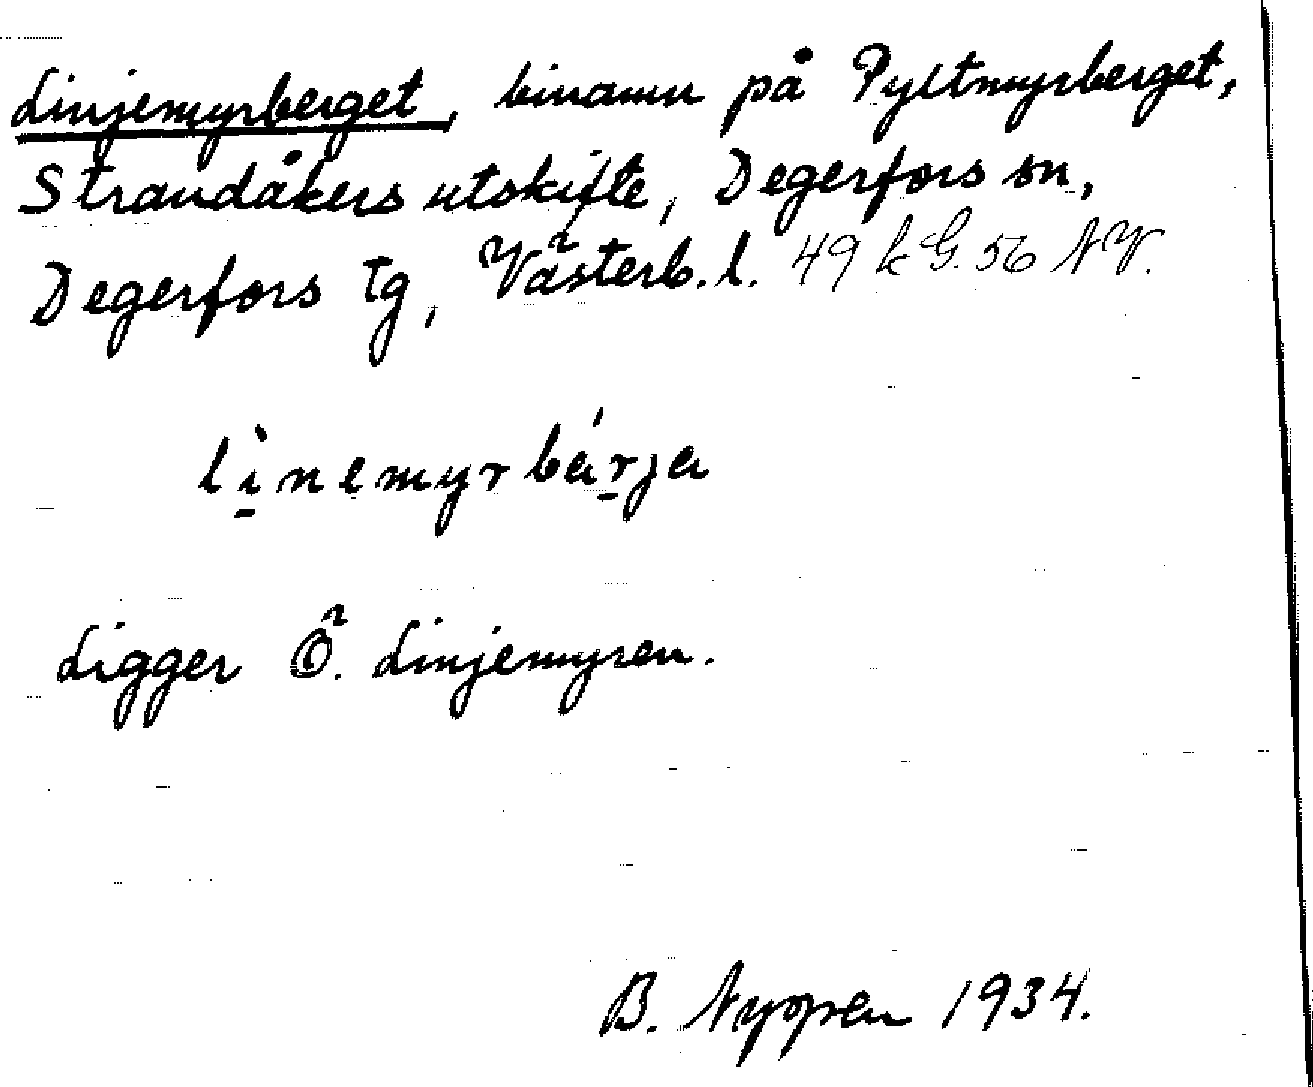 Linjemyrberget, binamn på Pyltmyrberget,
Strandåkers utskifte, Degerfors sn,
Degerfors tg, Västerb. l. 49 k G. 56 NV.
lìnemyrbárja
Ligger Ö. Linjemyren.
B. Nyopen 1934.